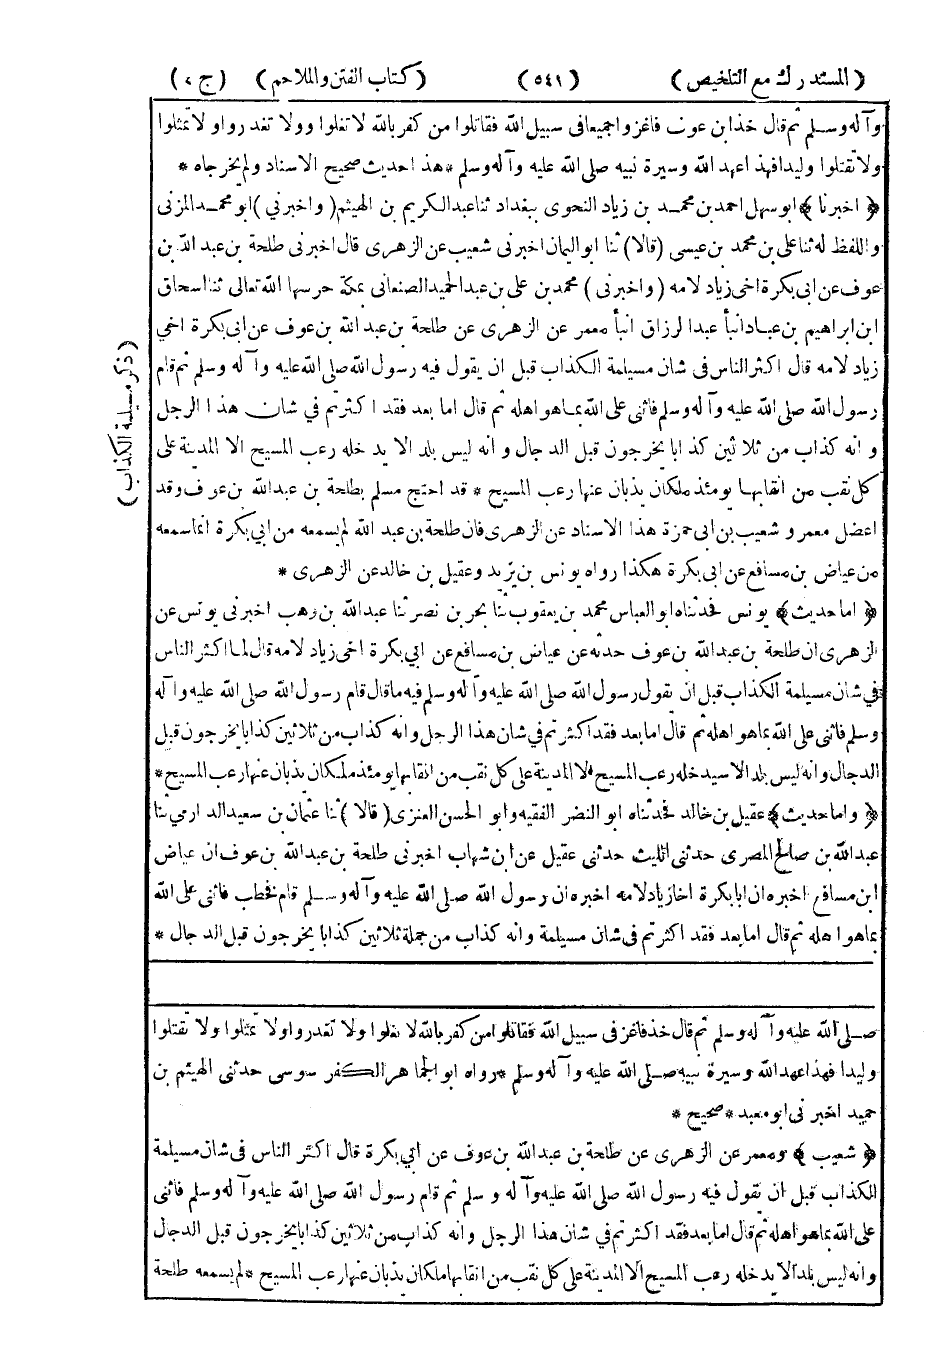 ( المستدرك مع التلخيص ) ( ٥٤١ ) ( كتاب الفتن والملاحم ) ( ج ٤ )
وآله وسلم ثم قال خذ ابن عوف فاغزوا جميعا فى سبيل الله فقاتلوا من كفر بالله لا تغلوا وولا تغدروا ولا تمثلوا
ولا تقتلوا وليدا فهذ اعهد الله وسيرة نبيه صلى الله عليه وآله وسلم * هذا حديث صحيح الاسناد ولم يخرجاه *
﴿ اخبرنا ﴾ ابو سهل احمد بن محمد بن زياد النحوى ببغداد ثنا عبد الكريم بن الهيثم ( واخبرني ) ابو محمد المزنى
واللفظ له ثنا على بن محمد بن عيسى ( قالا ) ثنا ابو اليمان اخبرنى شعيب عن الزهرى قال اخبرنى طلحة بن عبد الله بن
عوف عن ابى بكرة اخى زياد لامه ( واخبرنى ) محمد بن على بن عبد الحميد الصنعانى بمكة حرسها الله تعالى ثنا اسحاق
ابن ابراهيم بن عباد انبأ عبد الرزاق انبأ معمر عن الزهرى عن طلحة بن عبد الله بن عوف عن ابى بكرة اخي
زياد لامه قال اكثر الناس فى شان مسيلمة الكذاب قبل ان يقول فيه رسول الله صلى الله عليه وآله وسلم ثم قام
رسول الله صلى الله عليه وآله وسلم فاثنى على الله بما هو اهله ثم قال اما بعد فقد اكثرتم في شان هذا الرجل
وانه كذاب من ثلاثين كذابا يخرجون قبل الدجال وانه ليس بلد الا يدخله رعب المسيح الا المدينة على
كل نقب من انقابها يومئذ ملكان يذبان عنها رعب المسيح * قد احتج مسلم بطلحة بن عبد الله بن عوف وقد
اعضل معمر وشعيب بن ابى حمزة هذا الاسناد عن الزهرى فان طلحة بن عبد الله لم يسمعه من ابي بكرة انما سمعه
من عياض بن مسافع عن ابى بكرة هكذا رواه يونس بن يزيد وعقيل بن خالد عن الزهرى *
﴿ اما حديث ﴾ يونس فحدثناه ابو العباس محمد بن يعقوب ثنا بحر بن نصر ثنا عبد الله بن وهب اخبرنى يونس عن
الزهرى ان طلحة بن عبد الله بن عوف حدثه عن عياض بن مسافع عن ابي بكرة اخى زياد لامه قال لما اكثر الناس
في شان مسيلمة الكذاب قبل ان يقول رسول الله صلى الله عليه وآله وسلم فيه ما قال قام رسول الله صلى الله عليه وآله
وسلم فاثنى على الله بما هو اهله ثم قال اما بعد فقد اكثرتم في شان هذا الرجل وانه كذاب من ثلاثين كذابا يخرجون قبل
الدجال وانه ليس بلد الا سيدخله رعب المسيح الا المدينة على كل نقب من انقابها يومئذ ملكان يذبان عنها رعب المسيح *
﴿ واما حديث ﴾ عقيل بن خالد فحدثناه ابو النضر الفقيه وابو الحسن العنزى ( قالا ) ثنا عثمان بن سعيد الدارمي ثنا
عبد الله بن صالح المصرى حدثنى الليث حدثنى عقيل عن ابن شهاب اخبرنى طلحة بن عبد الله بن عوف ان عياض
ابن مسافع اخبره ان ابا بكرة اخا زياد لامه اخبره ان رسول الله صلى الله عليه وآله وسلم قام فخطب فاثنى على الله
بما هو اهله ثم قال اما بعد فقد اكثرتم فى شان مسيلمة وانه كذاب من جملة ثلاثين كذابا يخرجون قبل الدجال *
( ذكر مسيلمة الكذاب )
صلى الله عليه وآله وسلم ثم قال خذ فاغز فى سبيل الله فقاتلوا من كفر بالله لا تغلوا ولا تغدروا ولا تمثلوا ولا تقتلوا
وليدا فهذا عهد الله وسيرة نبيه صلى الله عليه وآله وسلم * رواه ابو الجماهر الكفرسوسى حدثنى الهيثم بن
حميد اخبرنى ابو معبد * صحيح *
﴿ شعيب ﴾ ومعمر عن الزهرى عن طلحة بن عبد الله بن عوف عن ابي بكرة قال اكثر الناس فى شان مسيلمة
الكذاب قبل ان يقول فيه رسول الله صلى الله عليه وآله وسلم ثم قام رسول الله صلى الله عليه وآله وسلم فاثنى
على الله بما هو اهله ثم قال اما بعد فقد اكثرتم في شان هذا الرجل وانه كذاب من ثلاثين كذابا يخرجون قبل الدجال
وانه ليس بلد الا يدخله رعب المسيح الا المدينة على كل نقب من انقابها ملكان يذبان عنها رعب المسيح * لم يسمعه طلحة